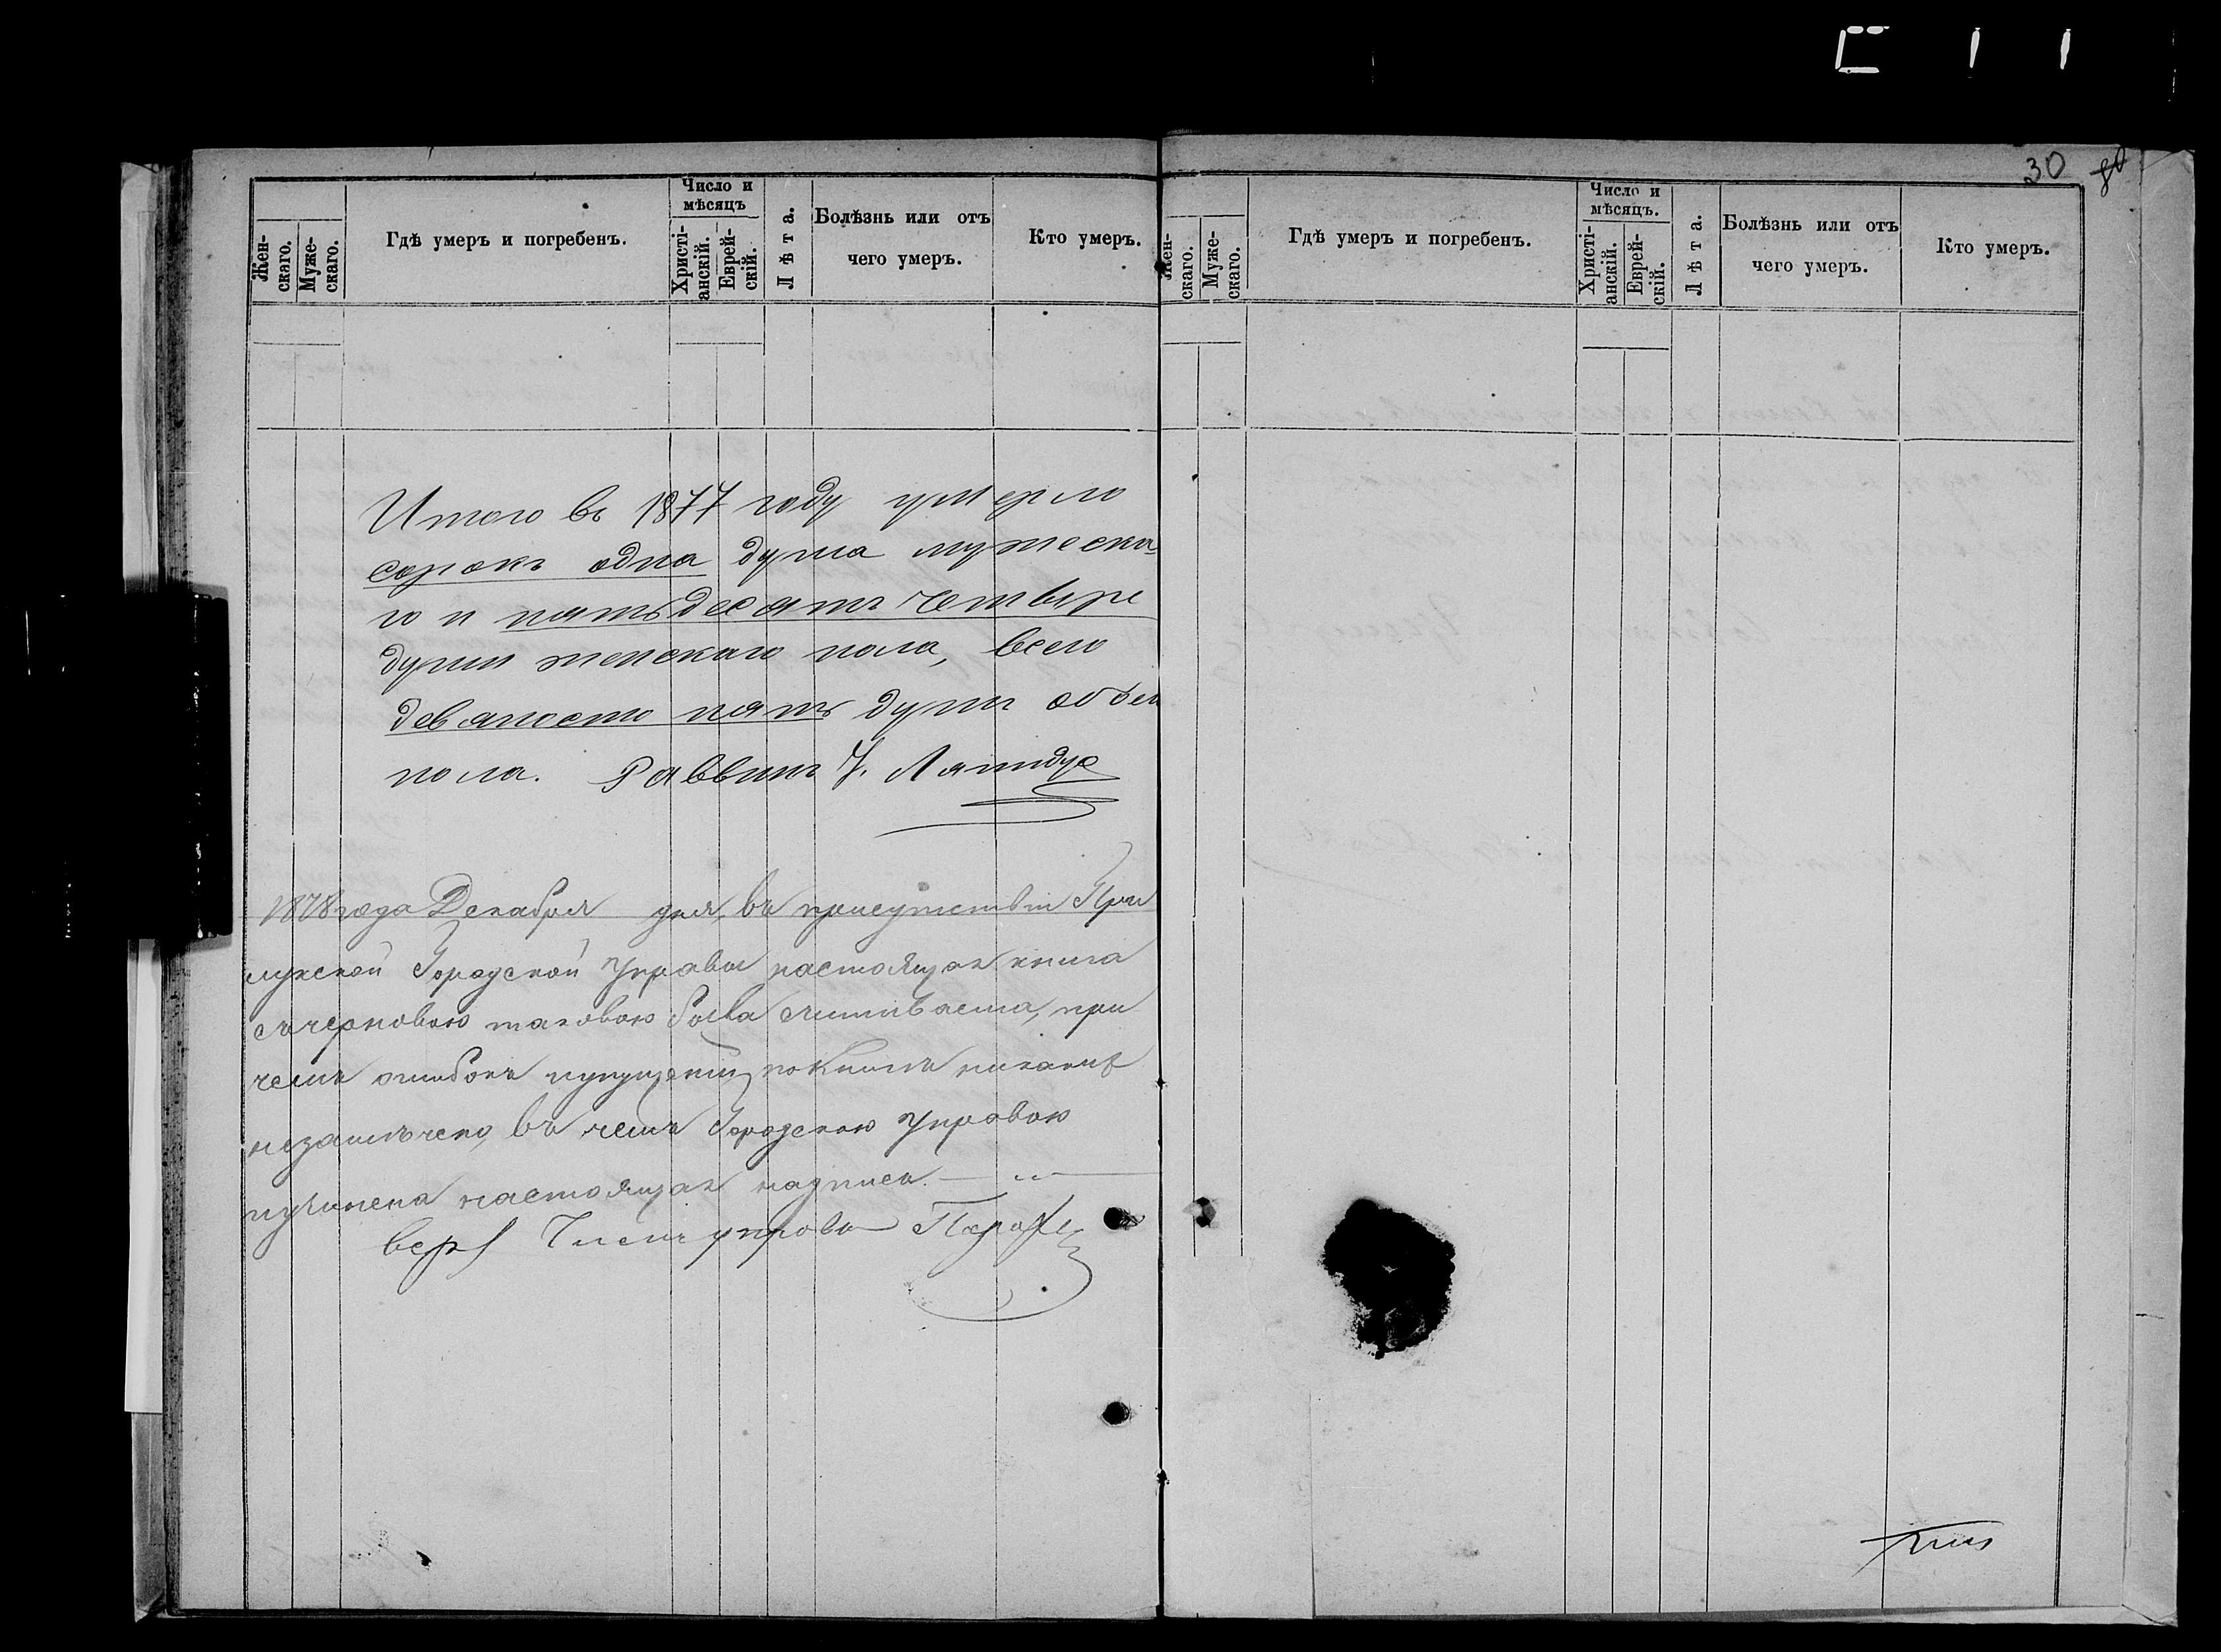 30 80
Жен-
скаго.
Муже-
скаго.
Гдѣ умеръ и погребенъ.
Число и
мѣсяцъ
Христі-
анскій.
Еврей-
скій.
Лѣта.
Болѣзнь или отъ
чего умеръ.
Кто умеръ.
Итого въ 1877 году умерло
сорокъ одна душа мужеска-
го и пятьдесятъ четыре
души женскаго пола, всего
девяносто пять душъ обоего
пола. Раввинъ Лапидус
1878 года Декабря дня, въ присутствіи При
лукской Городской Управы настоящая книга
съ черновою таковою была считываема, при
чемъ ошибокъ и упущеній по книгѣ никакихъ
незамѣчено, въ чемъ Городскою Управою
и учинена настоящая надпись.
Членъ управы
Жен-
скаго.
Муже-
скаго.
Гдѣ умеръ и погребенъ.
Число и
мѣсяцъ.
Христі-
анскій.
Еврей-
скій.
Лѣта.
Болѣзнь или отъ
чего умеръ.
Кто умеръ.